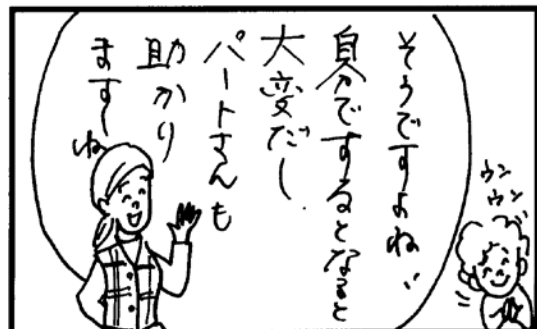 そうですよね、
自分でするとなると
大変だし、
パートさんも
助かり
ます〜ね
ウンウン